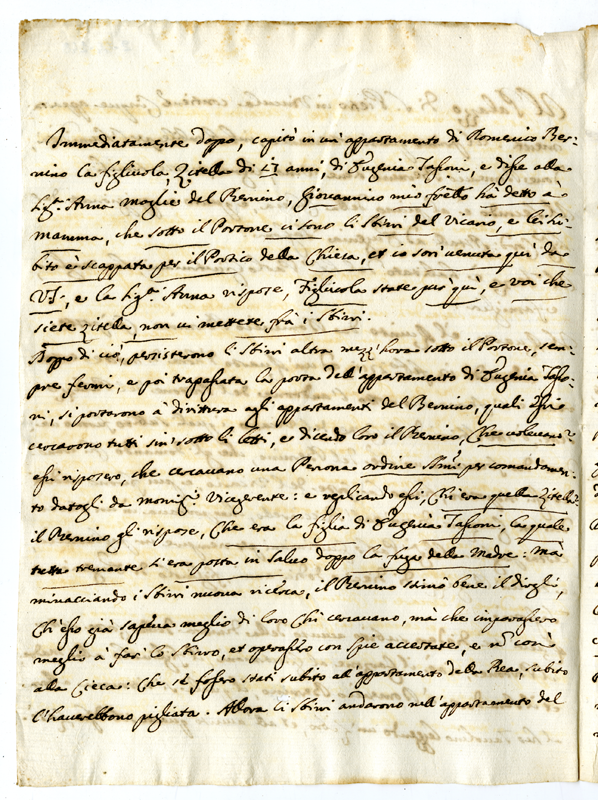 Immediatamente doppo, capitò in un' appartamento di Domenico Ber-
nino la figliuola, Zitella di 17 anni, di Eugenia Tassoni, e disse alla
Sig.ra Anna moglie del Bernino, Giovannino mio fratello hà detto à
mamma, che sotto il Portone ci sono li Sbirri del Vicario, e lei su-
bito è scappata per il Portico della Chiesa, et io son' venuta quì da
VS., e la Sig.ra Anna rispose, Figliuola state pur quì, e voi che
siete zitella, non vi mettete frà i Sbirri.
Doppo di ciò, persisterono li Sbirri altra mezz'hora sotto il Portone, sem-
pre fermi, e poi trapassata la porta dell'appartamento di Eugenia Tasso-
ni, si portarono à dirittura agli appartamenti del Bernino, quali essi
cercarono tutti sin' sotto li letti, e dicendo loro il Bernino, Che volevano?
essi risposero, che cercavano una Persona ordine S.mi per comandamen-
to datogli da monsig.r Vicegerente: e replicando essi, Chi era quella Zitella?
il Bernino gli rispose, Che era la figlia di Eugenia Tassoni, la quale
tutta tremante si era posta in salvo doppo la fuga della Madre: ma
minacciando i Sbirri nuova ricerca, il Bernino stimò bene il dirgli,
Ch'esso già sapeva meglio di loro Chi cercavano, mà che imparassero
meglio à far' lo Sbirro, et operassero con spie accertate, e n̄ così
alla Cieca: Che se fossero stati subito all'appartamento della Rea, subito
l'haverebbono pigliata. Allora li Sbirri andarono nell'appartamento del